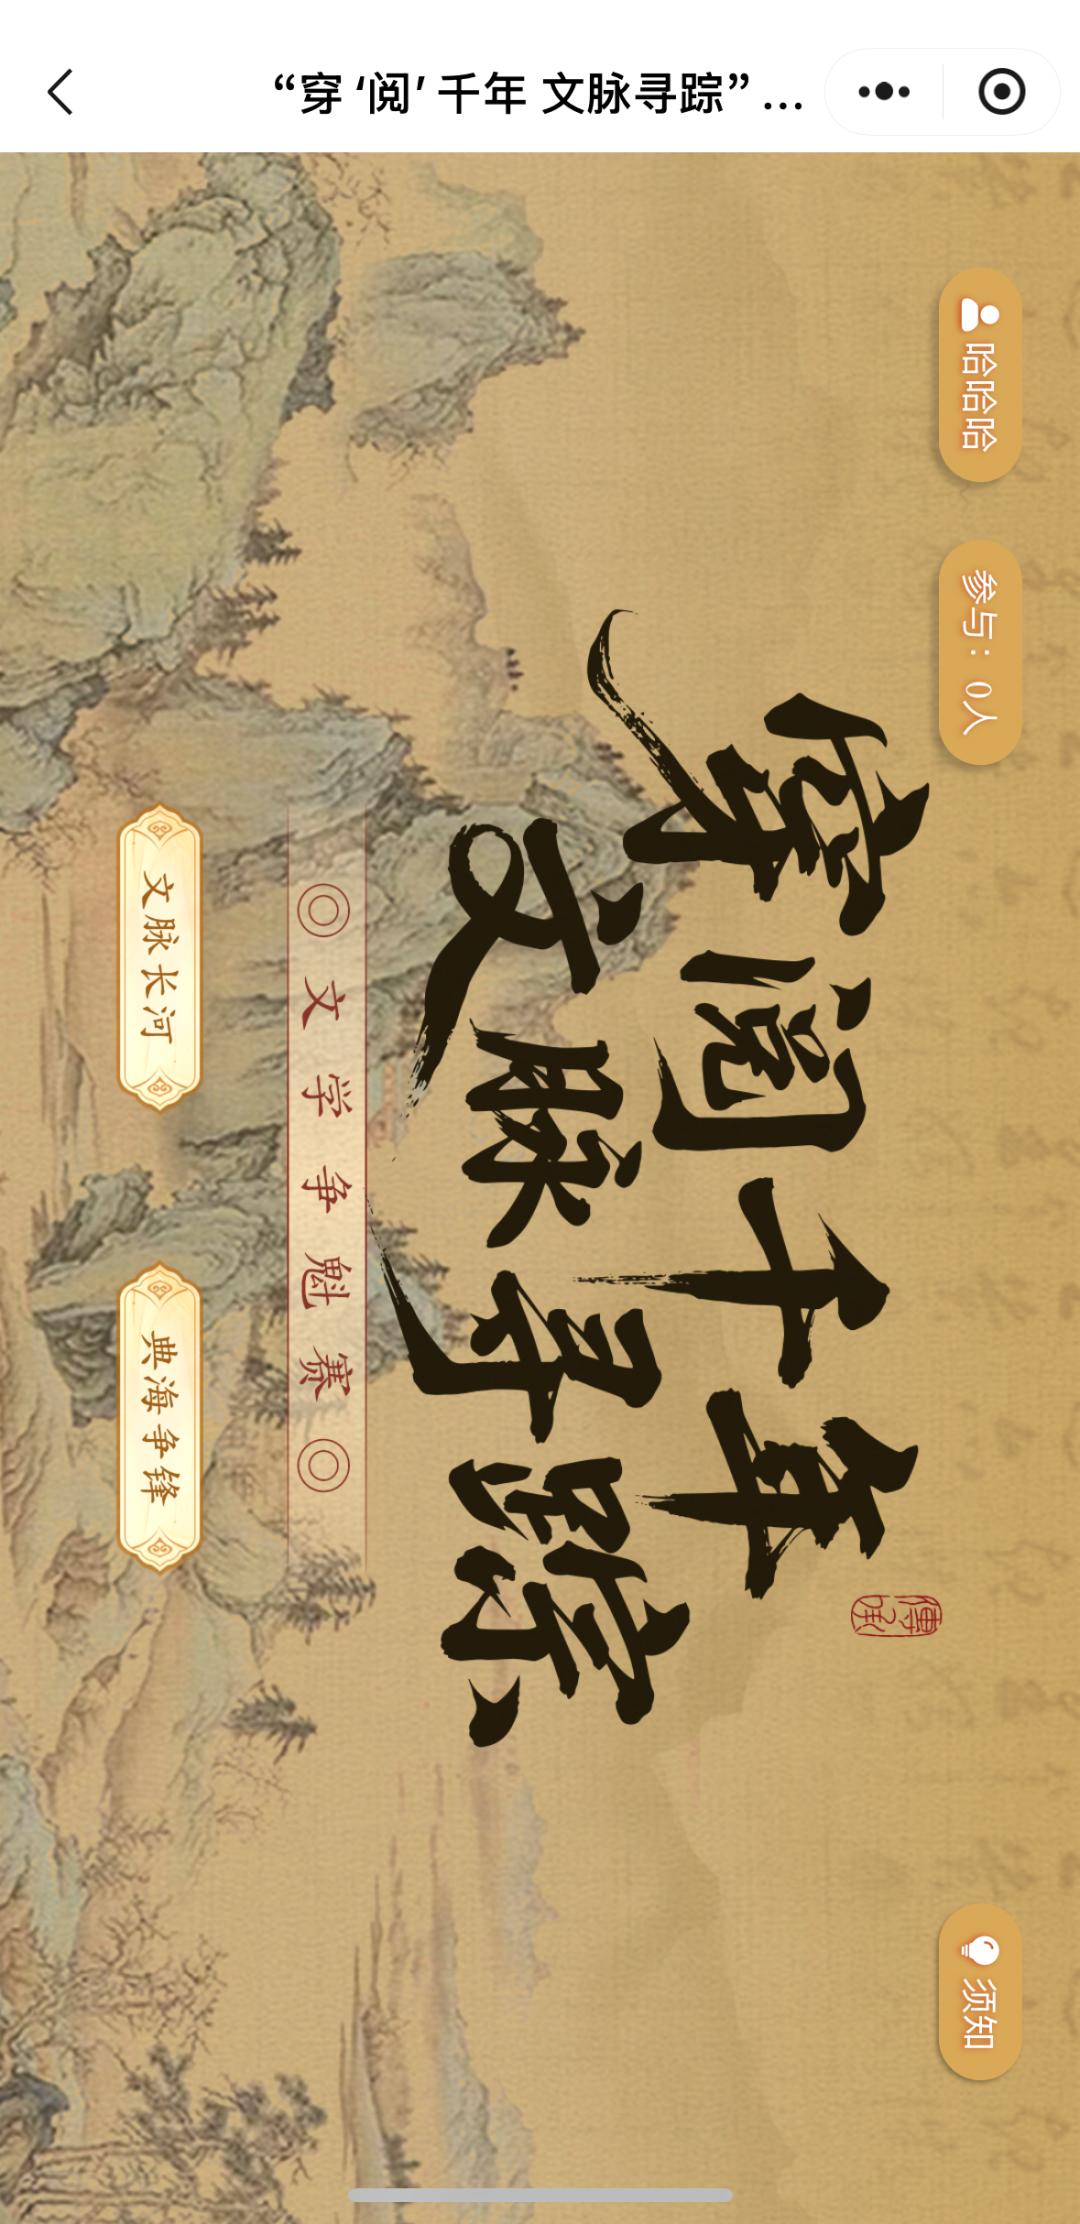 “穿 ‘阅’ 千年 文脉寻踪” ...
哈哈哈
参与：0人
须知
穿阅千年
傳承
文脉寻踪
◎ 文学争魁赛 ◎
文脉长河
典海争锋